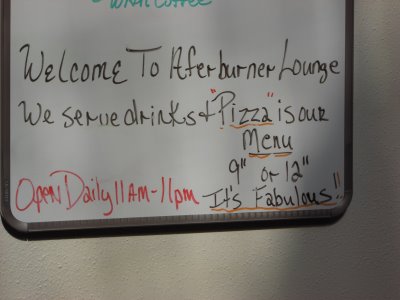 with coffee
Welcome To Aferburner Lounge
We serve drinks & "Pizza" is our
Menu
9" or 12"
Open Daily 11AM-11pm It's Fabulous!!